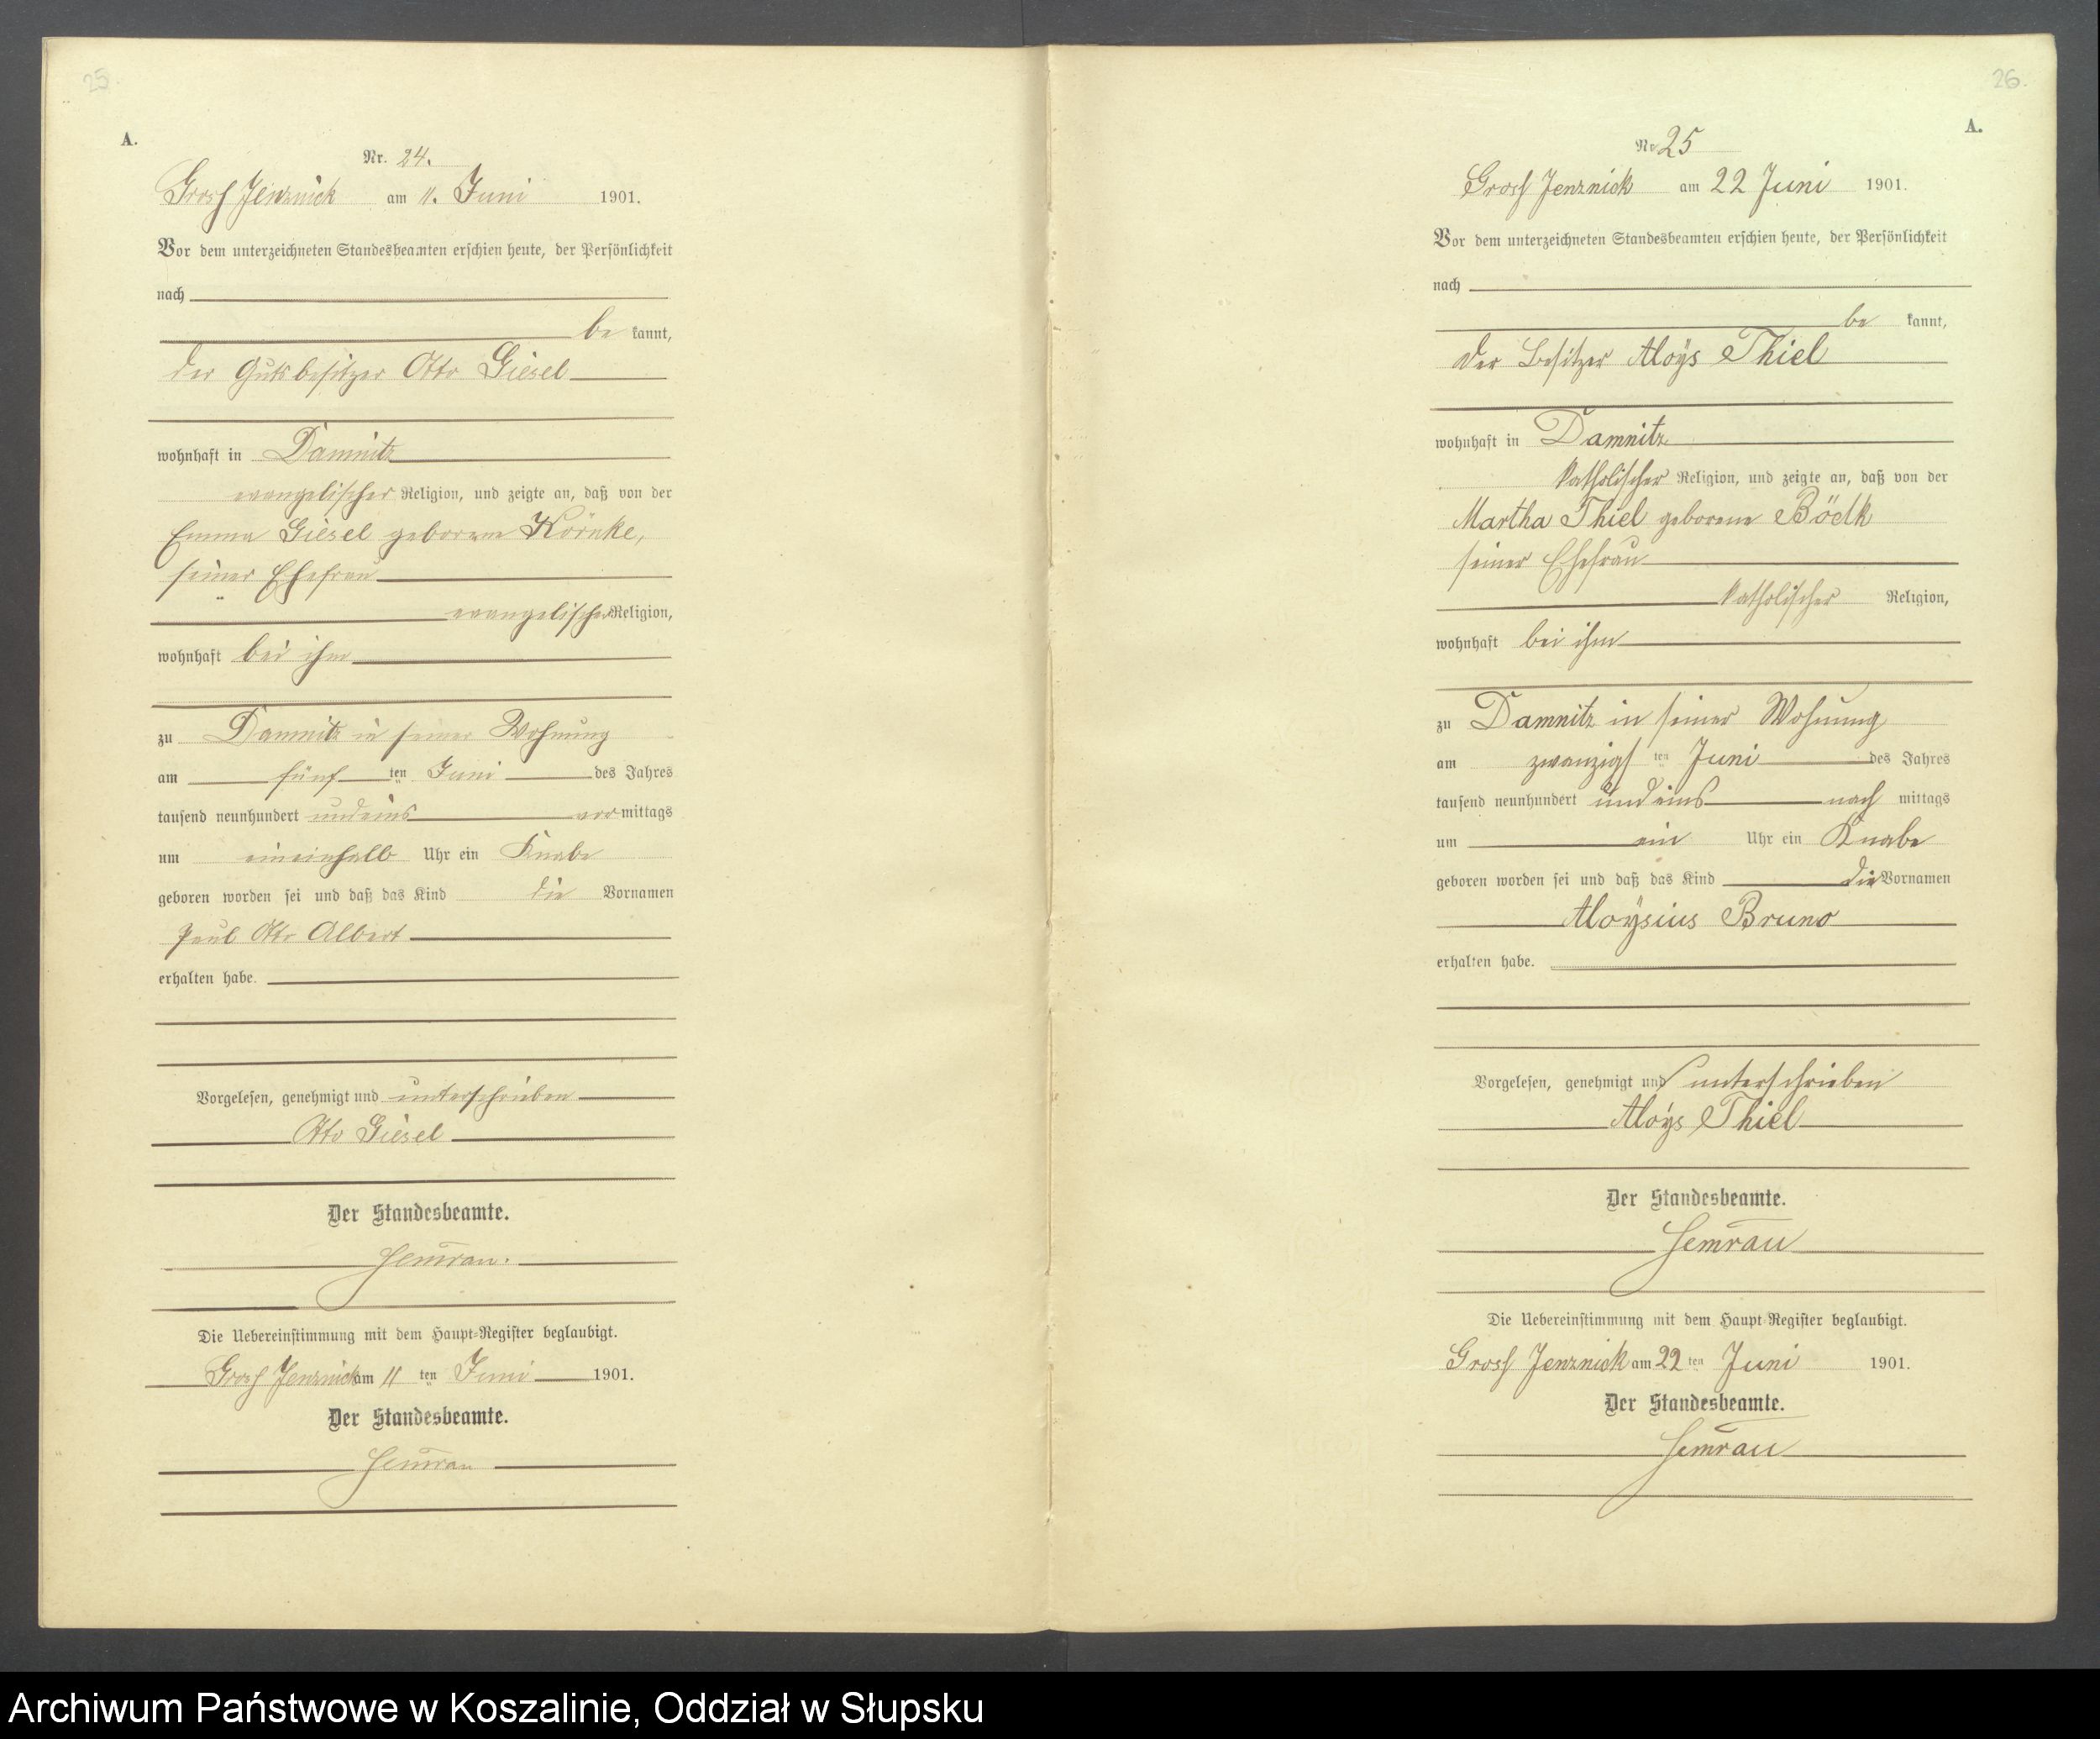 25.
A.
Nr. 24.
Gross Jenznick am 11. Juni 1901.
Vor dem unterzeichneten Standesbeamten erschien heute, der Persönlichkeit
nach
be kannt,
der Gutsbesitzer Otto Giesel
wohnhaft in Damnitz
evangelischer Religion, und zeigte an, daß von der
Emma Giesel geborene Körnke,
seiner Ehefrau
evangelischer Religion,
wohnhaft bei ihm
zu Damnitz in seiner Wohnung
am fünf ten Juni des Jahres
tausend neunhundert und eins vor mittags
um eineinhalb Uhr ein Knabe
geboren worden sei und daß das Kind die Vornamen
Paul Otto Albert
erhalten habe.
Vorgelesen, genehmigt und unterschrieben
Otto Giesel
Der Standesbeamte.
Semrau.
Die Uebereinstimmung mit dem Haupt-Register beglaubigt.
Gross Jenznick am 11 ten Juni 1901.
Der Standesbeamte.
Semrau
26.
A.
Nr 25
Gross Jenznick am 22 Juni 1901.
Vor dem unterzeichneten Standesbeamten erschien heute, der Persönlichkeit
nach
be kannt,
der Besitzer Aloÿs Thiel
wohnhaft in Damnitz
katholischer Religion, und zeigte an, daß von der
Martha Thiel geborene Bödk
seiner Ehefrau
katholischer Religion,
wohnhaft bei ihm
zu Damnitz in seiner Wohnung
am zwanzigs ten Juni des Jahres
tausend neunhundert und eins nach mittags
um ein Uhr ein Knabe
geboren worden sei und daß das Kind die Vornamen
Aloÿsius Bruno
erhalten habe.
Vorgelesen, genehmigt und unterschrieben
Aloÿs Thiel
Der Standesbeamte.
Semrau
Die Uebereinstimmung mit dem Haupt-Register beglaubigt.
Gross Jenznick am 22 ten Juni 1901.
Der Standesbeamte.
Semrau
Archiwum Państwowe w Koszalinie, Oddział w Słupsku